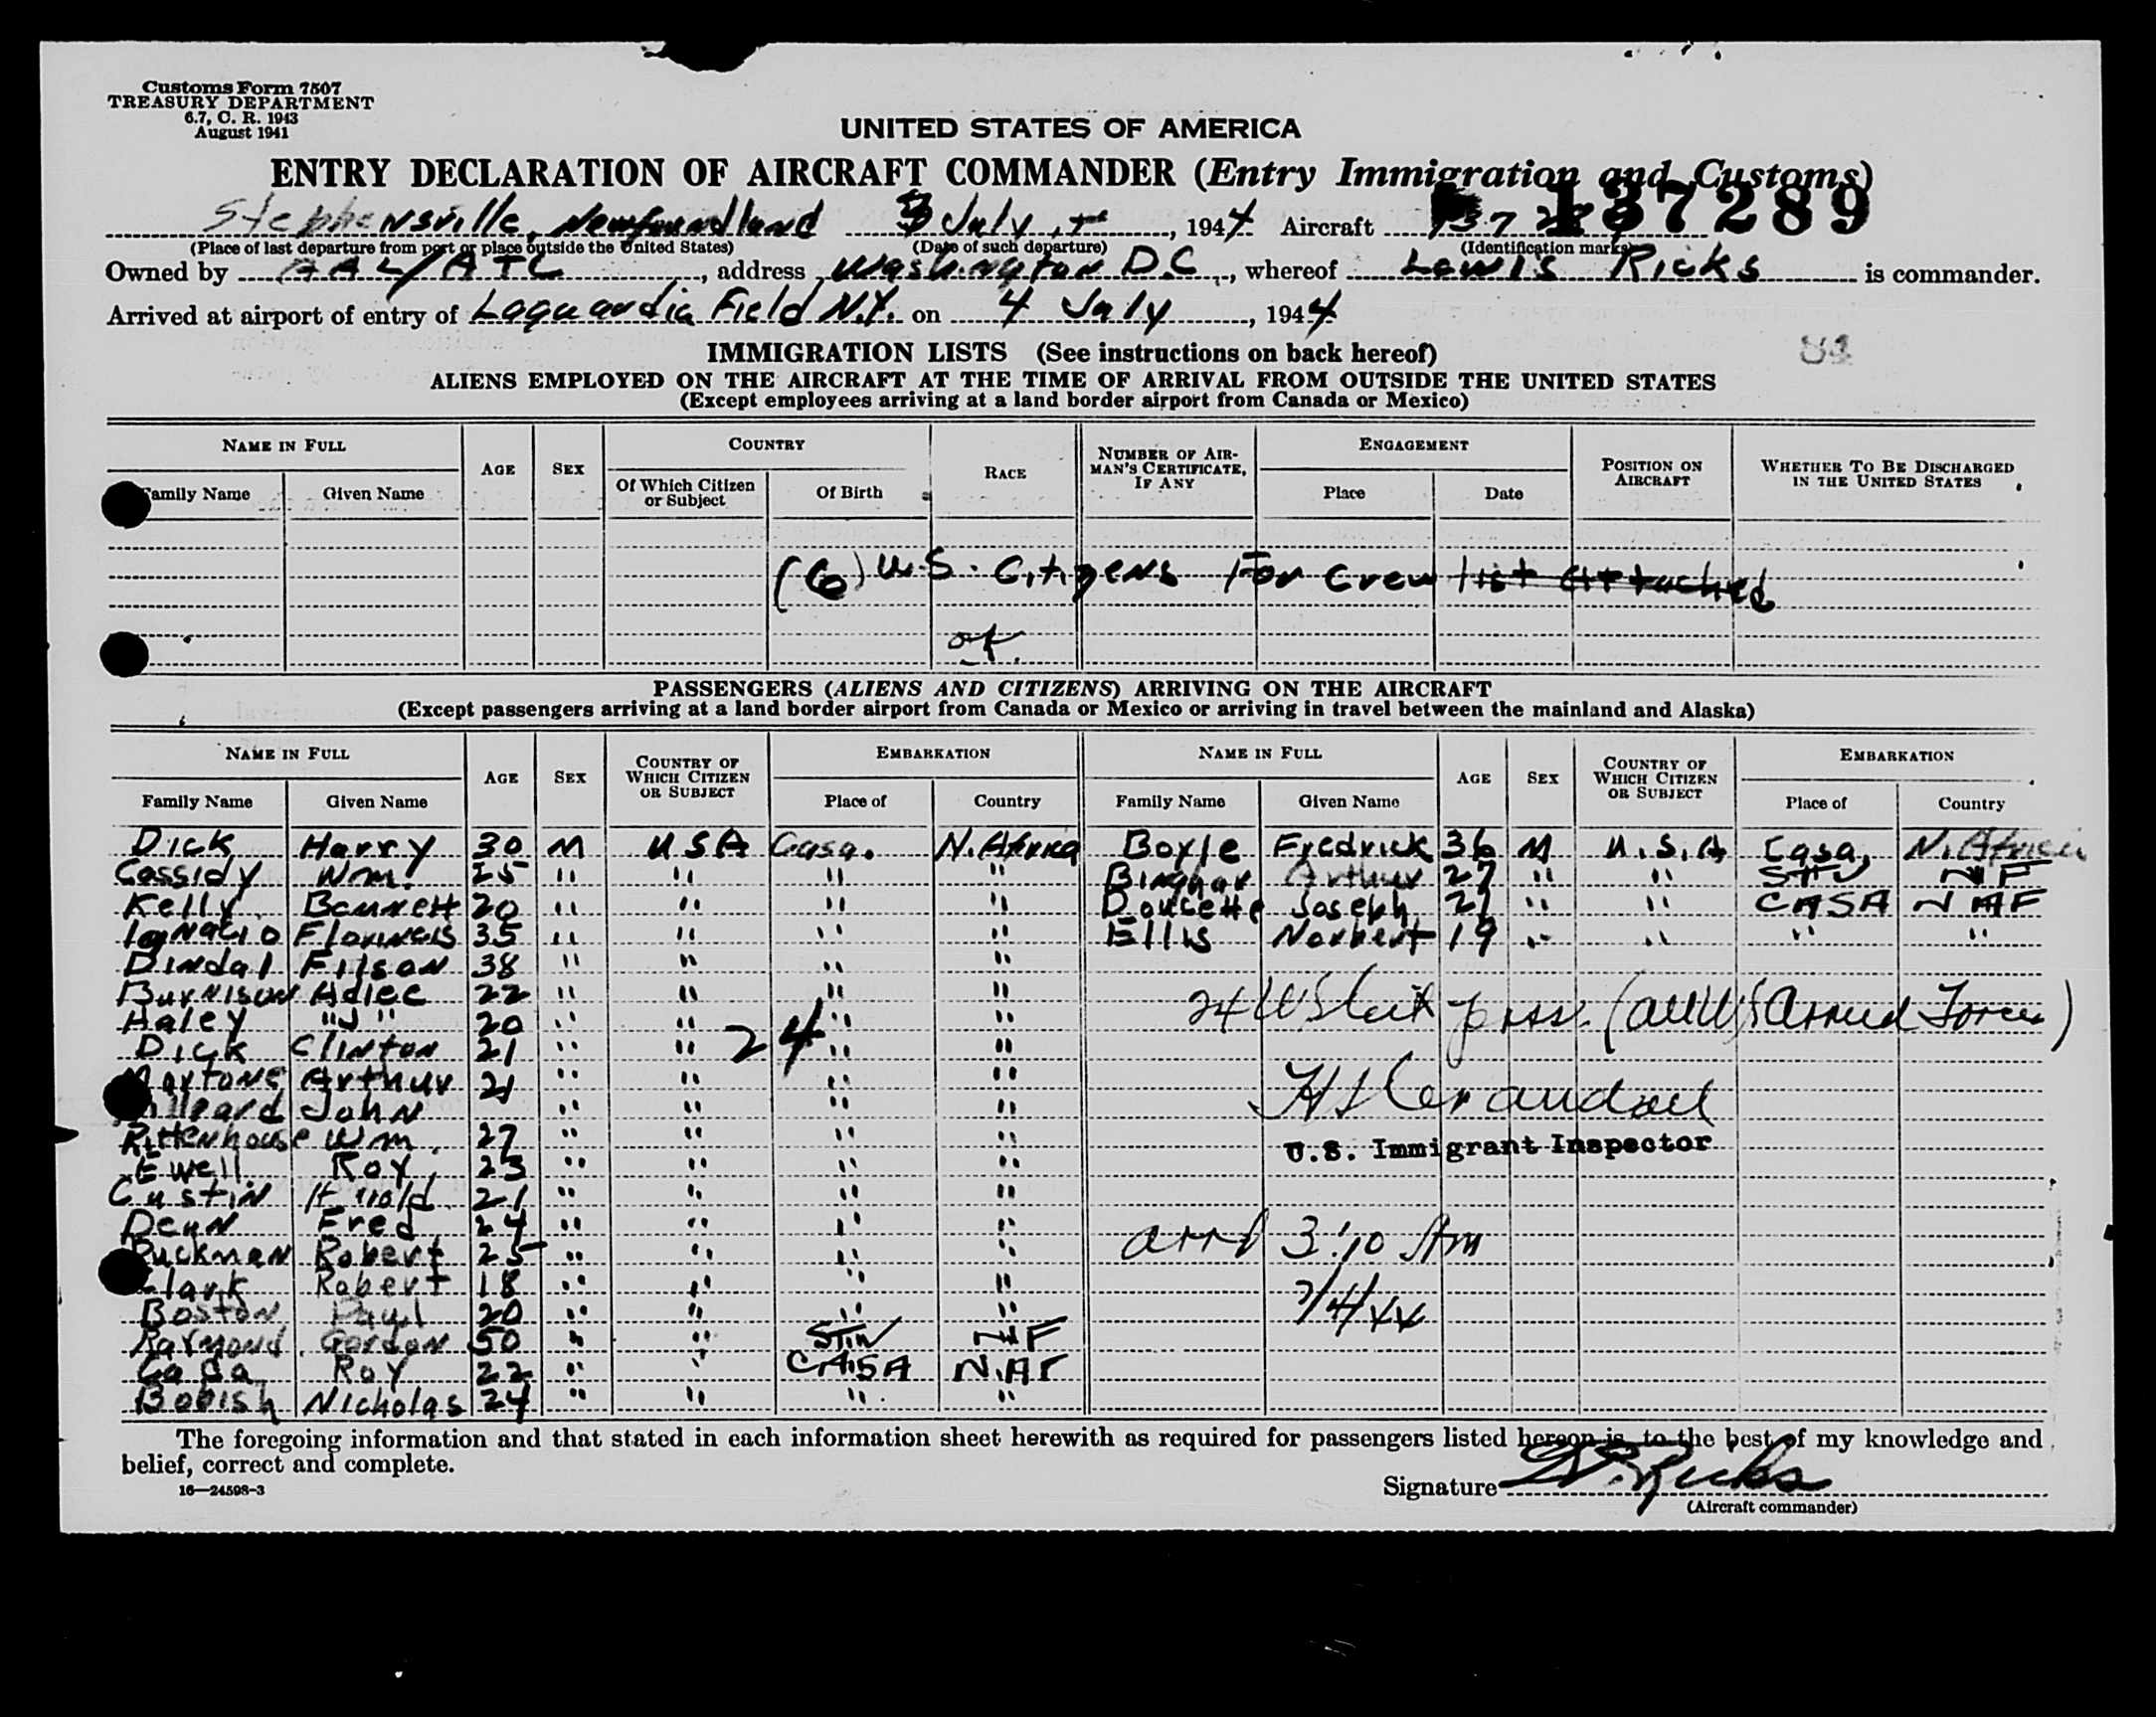 Customs Form 7507
TREASURY DEPARTMENT
6.7, C. R. 1943
August 1941
UNITED STATES OF AMERICA
ENTRY DECLARATION OF AIRCRAFT COMMANDER (Entry Immigration and Customs)
137289
Stephensville, Newfoundland 3 July, 1944 Aircraft 137289
(Place of last departure from port or place outside the United States) (Date of such departure) (Identification marks)
Owned by AAL/ATC, address Washington D.C., whereof Lewis Ricks is commander.
Arrived at airport of entry of Laguardia Field N.Y. on 4 July, 1944
IMMIGRATION LISTS (See instructions on back hereof)
ALIENS EMPLOYED ON THE AIRCRAFT AT THE TIME OF ARRIVAL FROM OUTSIDE THE UNITED STATES
(Except employees arriving at a land border airport from Canada or Mexico)
NAME IN FULL AGE SEX COUNTRY RACE NUMBER OF AIRMAN'S CERTIFICATE, IF ANY ENGAGEMENT POSITION ON AIRCRAFT WHETHER TO BE DISCHARGED IN THE UNITED STATES
Family Name Given Name Of Which Citizen or Subject Of Birth Place Date
(6) U.S. Citizens For Crew list attached
PASSENGERS (ALIENS AND CITIZENS) ARRIVING ON THE AIRCRAFT
(Except passengers arriving at a land border airport from Canada or Mexico or arriving in travel between the mainland and Alaska)
NAME IN FULL AGE SEX COUNTRY OF WHICH CITIZEN OR SUBJECT EMBARKATION NAME IN FULL AGE SEX COUNTRY OF WHICH CITIZEN OR SUBJECT EMBARKATION
Family Name Given Name Place of Country Family Name Given Name Place of Country
Dick Harry 30 M USA Casa. N. Africa Boyle Fredrick 36 M U.S.A Casa, N. Africa
Cassidy Wm. 25 " " " " Binghar Arthur 27 " " STV NF
Kelly Bennett 20 " " " " Doucette Joseph 21 " " CASA N AF
Ignacio 35 " " " " Ellis Norbert 19 " " " "
Dindal Filson 38 " " " "
Burnison Adlec 22 " " " "
Haley "J" 20 " " " "
24
24 US Cit pass. (all US Armed Forces)
Dick Clinton 21 " " " "
Martone Arthur 21 " " " "
John " " " "
Rittenhouse Wm. 27 " " " "
U.S. Immigrant Inspector
Ewell Roy 23 " " " "
Custin 21 " " " "
Dean Fred 24 " " " "
arrd 3:10 Am
Ruckman Robert 25 " " " "
Clark Robert 18 " " " "
7/4/44
Boston Paul 20 " " " "
Raymond Gordon 50 " " STIV NF
Roy 22 " " CASA N.AF
Bobish Nicholas 24 " " " "
The foregoing information and that stated in each information sheet herewith as required for passengers listed hereon is, to the best of my knowledge and
belief, correct and complete.
16—24598-3
Signature L. Ricks
(Aircraft commander)